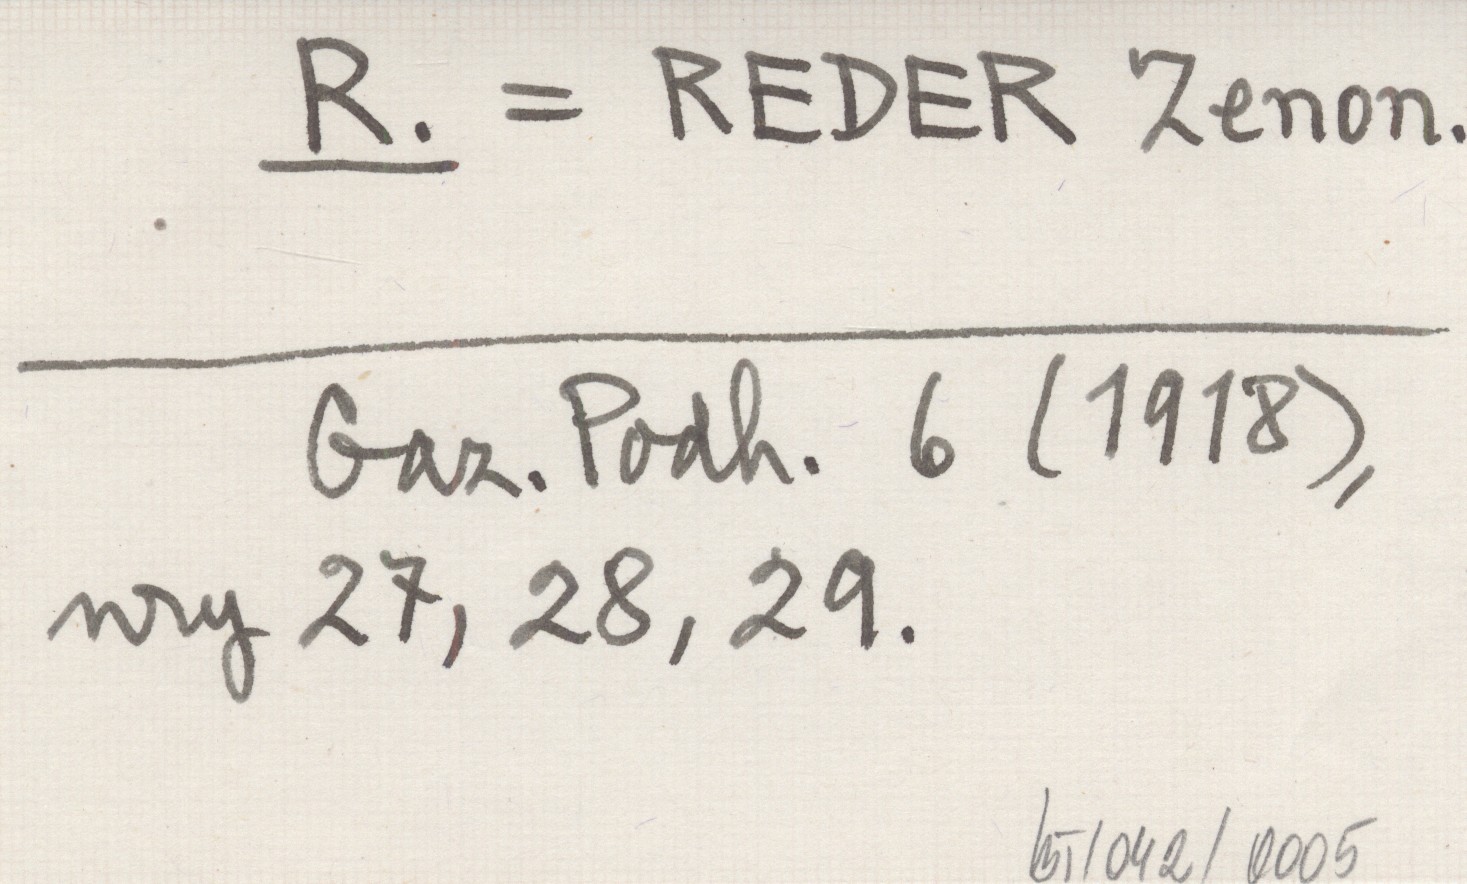 R. = REDER Zenon.
Gaz. Podh. 6 (1918),
nry 27, 28, 29.
/042/ 0005